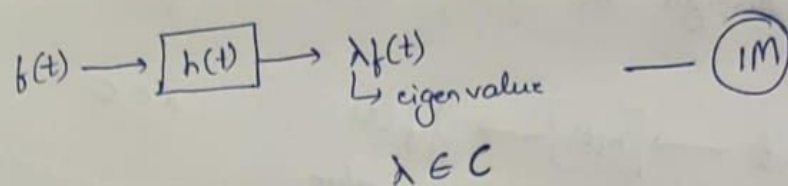 f(t) → h(t) → λf(t) — 1M
↳ eigenvalue
λ ∈ C